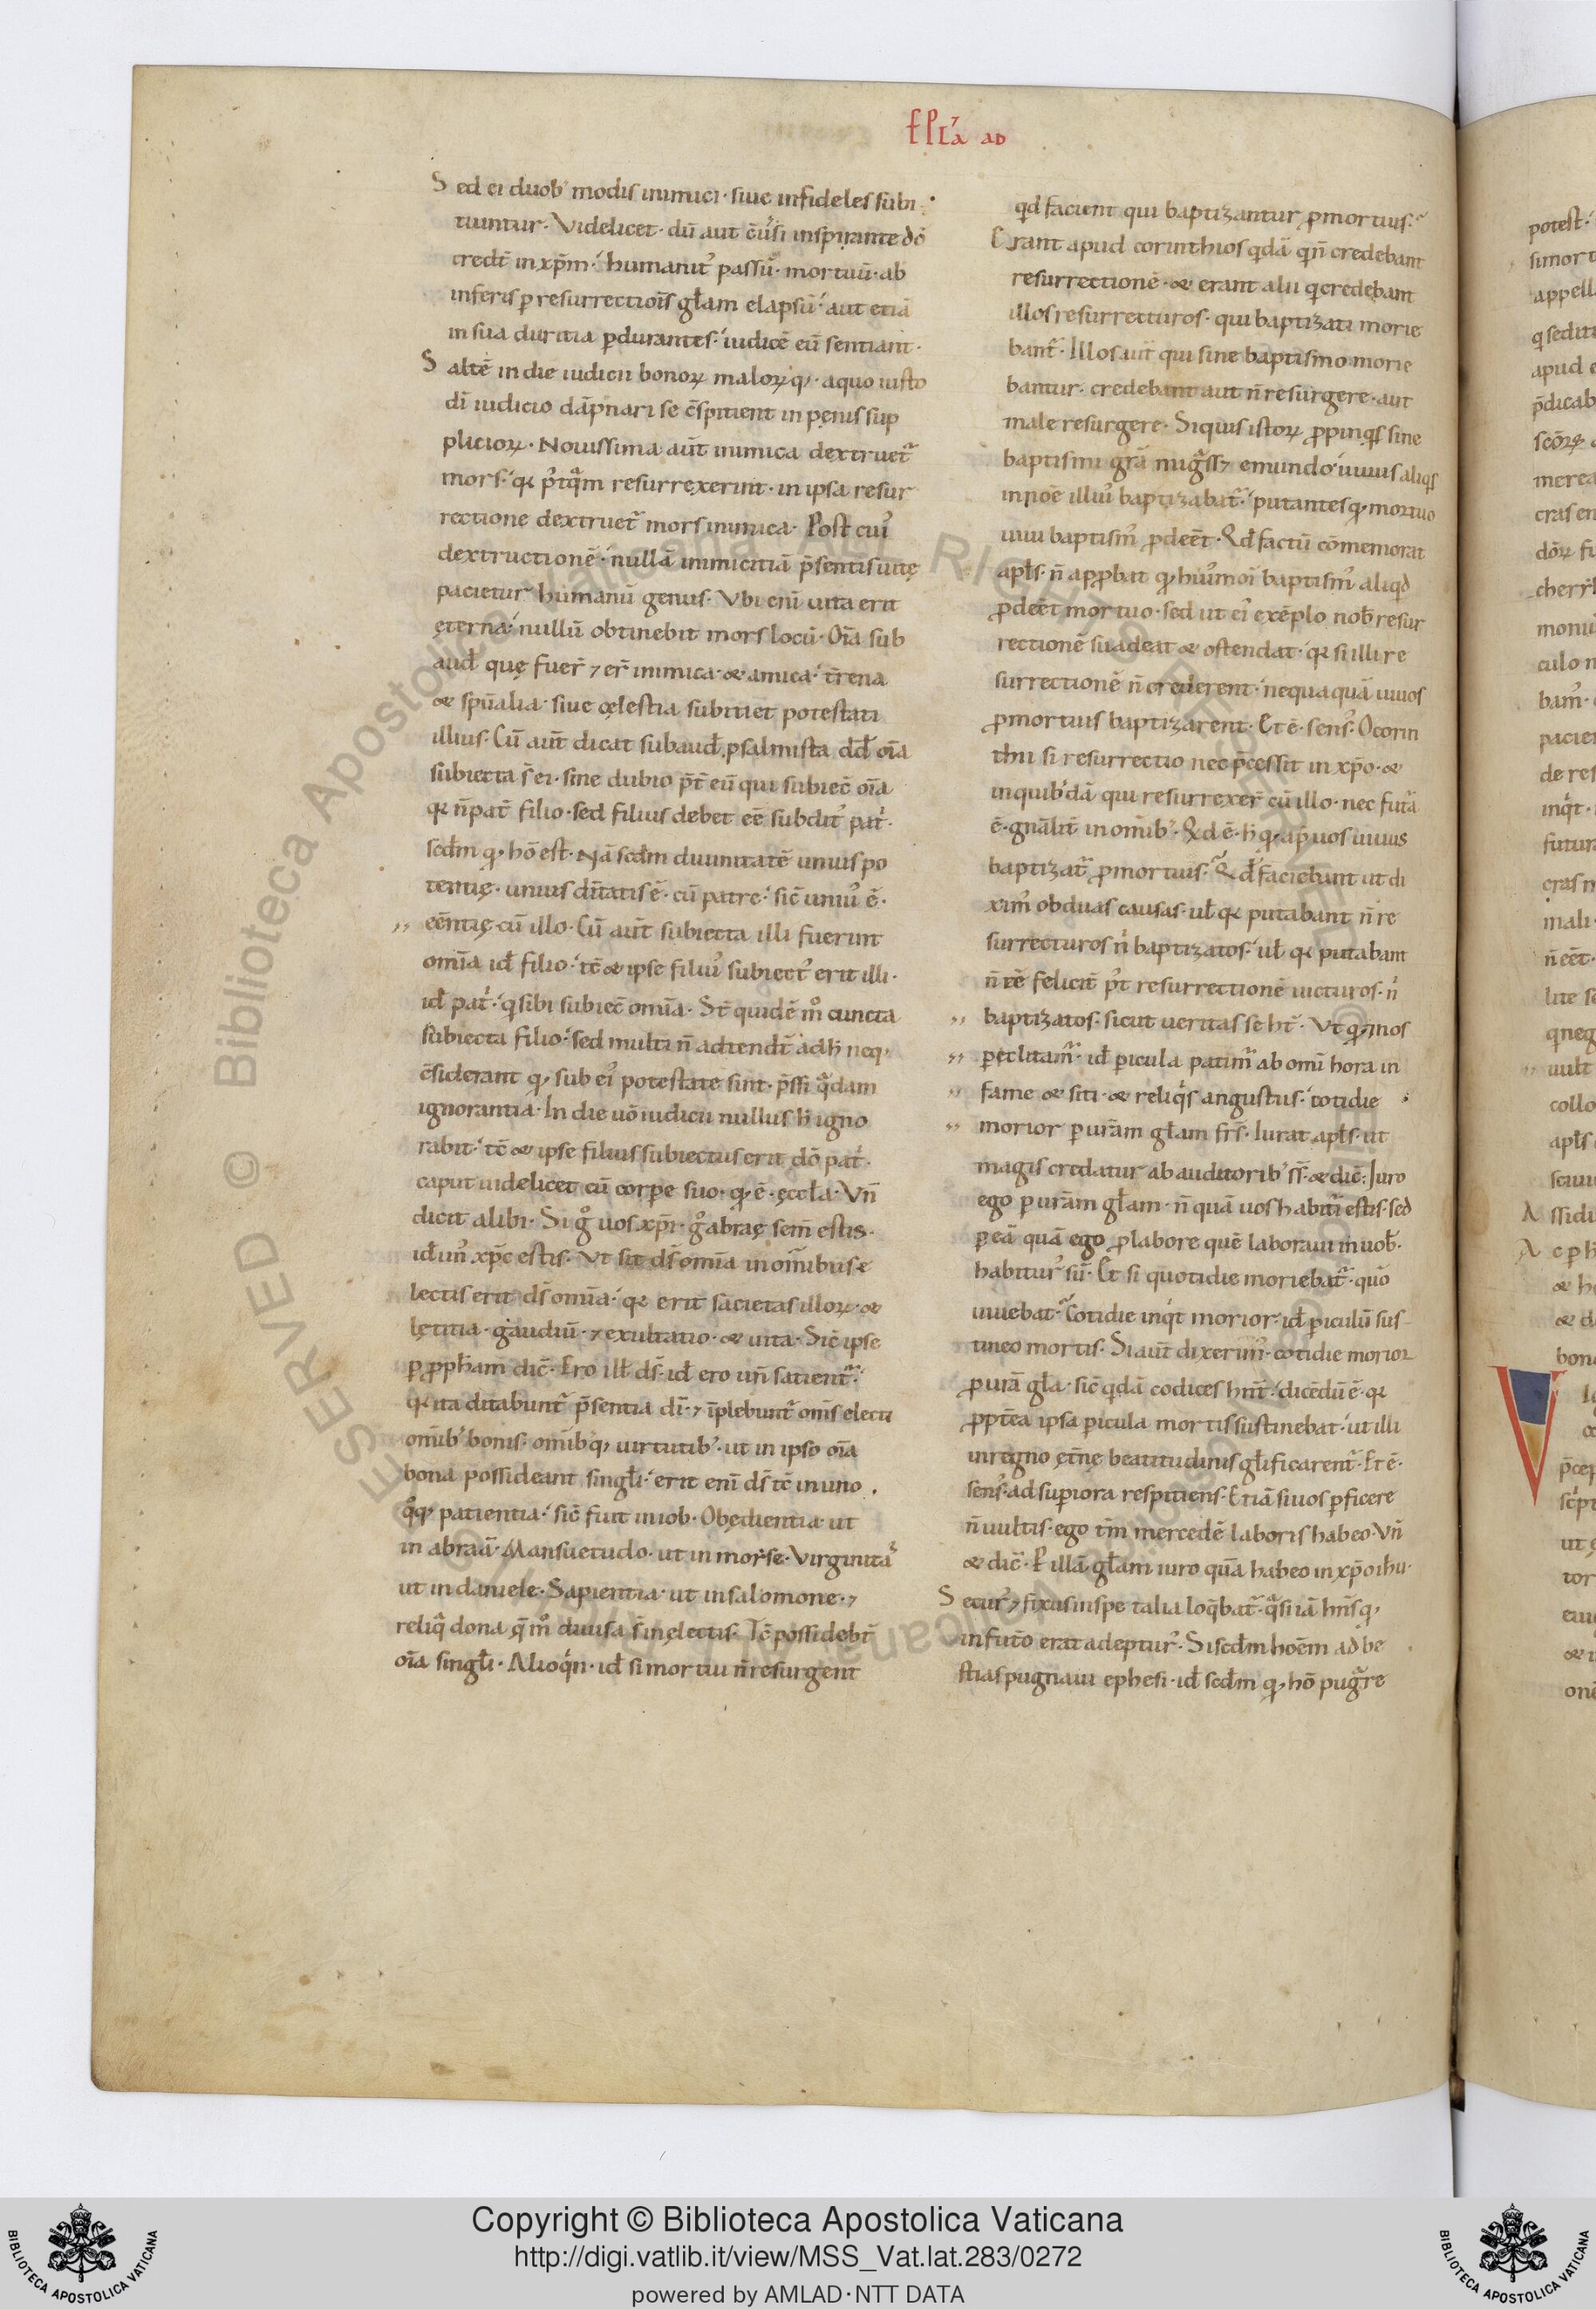 EPLA AD
Sed ei duob' modis inimici · siue infideles subi
tiuntur · Videlicet · dū aut c̄u'si inspirante dō
credt̄ in xp̄m · humanit' passū · mortuū · ab
inferis p resurrectiois gl̄am elapsū · aut etiā
in sua duritia pdurantes · iudicē eū sentiant ·
Saltē in die iudicii bonoꝝ maloꝝq; · a quo iusto
dī iudicio dāpnari se c̄spitient in pęnis sup
plicioꝝ · Nouissima aūt inimica dextruet'
mors · qꝛ p'tq̄m resurrexerint · in ipsa resur
rectione dextruet' mors inimica · Post cui'
dextructionē · nullā inimicitiā p̄sentis uitę
pacietur humanū genus · Vbi enī uita erit
ęterna · nullū obtinebit mors locū · Oīa sub
aud̄ quę fuer̄ ⁊ er̄ inimica · & amica · t̄rena
& spūalia · siue cęlestia subitiet potestati
illius · Cū aūt dicat subaud̄ psalmista dd̄ oīa
subiecta s̄ ei · sine dubio p̄t̄ eū qui subiec̄ oīa
qꝛ n̄ pat̄ filio · sed filius debet eē subdit' pat'i ·
scd̄m q; hō est · Nā scd̄m diuinitatē unius po
tentię · unius dn̄tatis ē · cū patre · sic̄ uniu' ē ·
,, eēntię · cū illo · Cū aūt subiecta illi fuerint
omīa id̄ filio · tc̄ & ipse filiu' subiect' erit illi ·
id̄ pat'i · q sibi subiec̄ omīa · St̄ quidē m° cuncta
subiecta filio · sed multi n̄ adtendt̄ ad h̄ neq;
c̄siderant q; sub ei' potestate sint · p̄ssi q̄dam
ignorantia · In die uō iudicii nullus h̄ igno
rabit · tc̄ & ipse filius subiectus erit dō pat'i ·
caput uidelicet cū corpe suo · q; ē · ęccl̄a · Vn̄
dicit alibi · Si g° uos xp̄i · g° abraę sem̄ estis ·
id̄ un' xp̄c estis · Vt sit ds̄ omīa in omībus e
lectis erit ds̄ omīa · qꝛ erit sacietas illoꝝ · &
lętitia · gaudiū · ⁊ exultatio · & uita · Sic̄ ipse
p pph̄am dic̄ · Ero ill̄ ds̄ · id̄ ero un̄ satient' ·
qꝛ ita ditabunt' p̄sentia dī · ⁊ īplebunt' oms̄ electi
omīb' bonis · omībq; uirtutib' · ut in ipso oīa
bona possideant singl̄i · erit enī ds̄ tc̄ in uno
q°q; patientia · sic̄ fuit in iob · Obędientia ut
in abraā · Mansuetudo · ut in morse · Virginita'
ut in daniele · Sapientia · ut in salomone · ⁊
reliq̄ dona q̄ m° diuisa s̄ in ęlectis · Tc̄ possidebt̄
oīa singl̄i · Alioq'n · id̄ si mortui n̄ resurgent
qd facient qui baptizantur p mortuis ·
Erant apud corinthios qdā q n̄ credebant
resurrectionē · & erant alii q credebant
illos resurrecturos · qui baptizati morie
bant' · Illos aūt qui sine baptismo morie
bantur · credebant aut n̄ resurgere · aut
male resurgere · Siquis istoꝝ ppinqs sine
baptismi gr̄a miḡss⁊ e mundo · uiuus aliqs
in noē illiu' baptizabat' · putantes q; mortuo
uiui baptism' pdeēt · Qd̄ factū cōmemorat
apl̄s · n̄ app̄bat q; hiu'moi baptism' aliqd
pdeēt mortuo · sed ut ei' exēplo nob̄ resur
rectionē suadeat & ostendat · qꝛ si illi re
surrectionē n̄ crederent · nequaquā uiuos
p mortuis baptizarent · Et ē · sens' · O corin
thii si resurrectio nec p̄cessit in xp̄o · &
in quib'dā qui resurrexer̄ cū illo · nec fut'a
ē · gnālit̄ in omīb' · Qd ē · h̄ q; ap' uos uiuus
baptizat' p mortuis · Qd̄ faciebant ut di
xim' ob duas causas · ul̄ qꝛ putabant n̄ re
surrecturos n'i baptizatos · ul̄ qꝛ putabant
n̄ tē felicit̄ p't resurrectionē uicturos · n'i
,, baptizatos · sicut ueritas se ht̄ · Vt q; ⁊ nos
,, peclitam' · id̄ picula patim' ab omī hora in
,, fame & siti · & reliq's angustiis · cotidie
,, morior p ur̄am gl̄am frs̄ · Iurat apl̄s · ut
magis credatur ab auditorib' ss̄ · & dic̄ : Iuro
ego p ur̄am gl̄am · n̄ quā uos habituri estis · sed
p eā quā ego p labore quē laboraui in uob̄ ·
habitur' sū · Et si quotidie moriebat' · quō
uiuebat · Cotidie inq't morior · id̄ piculū sus
tineo mortis · Si aūt dixerim' · cotidie morior
p urā gl̄a · sic̄ qdā codices hn̄t · dicēdū ē · qꝛ
pptēa ipsa picula mortis sustinebat · ut illi
in regno ęt̄nę beatitudinis gl̄ificarent' · Et ē ·
sens' · ad supiora respitiens · Etiā si uos pficere
n̄ uultis · ego tm̄ mercedē laboris habeo · Vn̄
& dic̄ · P illā gl̄am iuro quā habeo in xp̄o ih̄u ·
Secur' ⁊ fixus in spe talia loq̄bat' · q̄si iā hns̄q;
in futō erat adeptur' · Si scd̄m hoēm ad be
stias pugnaui ephesi · id̄ scd̄m q; hō puḡre
potest ·
appell
q sedit
apud e
p̄dicab
merea
cras en
cherr
monu
culo n
pacien
de res
inq't ·
futur
cras m
mali
n̄ eēt ·
q neg
uult
collo
apl̄s
A ssidu
bona
V
p̄cep
tor
Copyright © Biblioteca Apostolica Vaticana
http://digi.vatlib.it/view/MSS_Vat.lat.283/0272
powered by AMLAD·NTT DATA
BIBLIOTECA APOSTOLICA VATICANA
BIBLIOTECA APOSTOLICA VATICANA